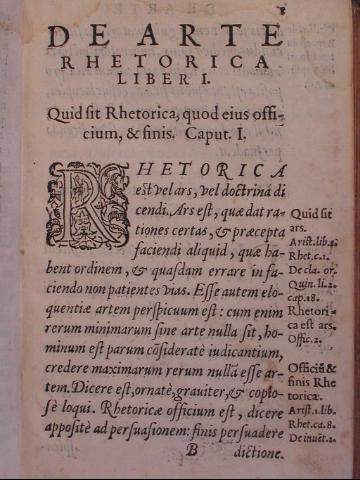 DE ARTE
RHETORICA
LIBER I.
Quid sit Rhetorica, quod eius offi-
cium, & finis. Caput. I.
RHETORICA
est vel ars, vel doctrina di
cendi. Ars est, quæ dat ra-
tiones certas, & præcepta
faciendi aliquid, quæ ha-
bent ordinem, & quasdam errare in fa-
ciendo non patientes vias. Esse autem elo-
quentiæ artem perspicuum est: cum enim
rerum minimarum sine arte nulla sit, ho-
minum est parum cōsideratè iudicantium,
credere maximarum rerum nullā esse ar-
tem. Dicere est, ornatè, grauiter, & copio-
sè loqui. Rhetoricæ officium est, dicere
appositè ad persuasionem: finis persuadere
B dictione.
Quid sit
ars.
Arist. lib. 1.
Rhet. c. 1.
De cla. or.
Quin. li. 2.
cap. 18.
Rhetori-
ca est ars.
Offic. 2.
Officiū &
finis Rhe
toricæ.
Arist. 1. lib.
Rhet. ca. 8.
De inuēt. 2.